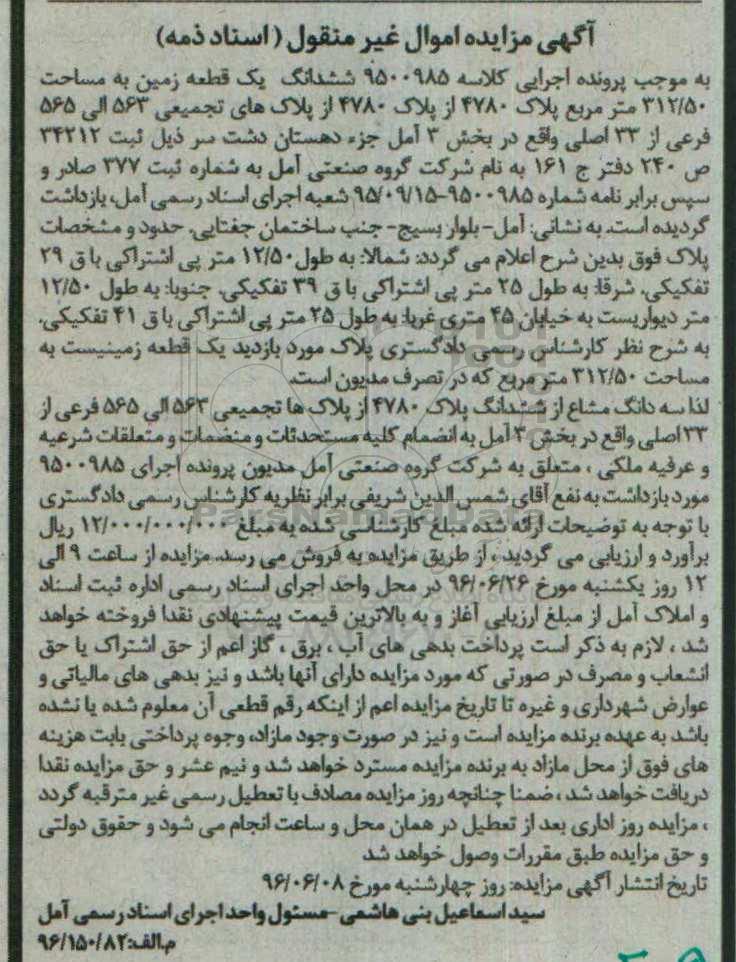 آگهی مزایده اموال غیر منقول (اسناد ذمه)
به موجب پرونده اجرایی کلاسه ۹۵۰۰۹۸۵ ششدانگ یک قطعه زمین به مساحت
۳۱۲/۵۰ متر مربع پلاک ۴۷۸۰ از پلاک ۴۷۸۰ از پلاک های تجمیعی ۵۶۳ الی ۵۶۵
فرعی از ۳۳ اصلی واقع در بخش ۳ آمل جزء دهستان دشت سر ذیل ثبت ۳۴۲۱۲
ص ۲۴۰ دفتر ج ۱۶۱ به نام شرکت گروه صنعتی آمل به شماره ثبت ۳۷۷ صادر و
سپس برابر نامه شماره ۹۵۰۰۹۸۵-۹۵/۰۹/۱۵ شعبه اجرای اسناد رسمی آمل، بازداشت
گردیده است. به نشانی: آمل- بلوار بسیج- جنب ساختمان جغتایی. حدود و مشخصات
پلاک فوق بدین شرح اعلام می گردد: شمالا: به طول ۱۲/۵۰ متر پی اشتراکی با ق ۲۹
تفکیکی. شرقا: به طول ۲۵ متر پی اشتراکی با ق ۳۹ تفکیکی. جنوبا: به طول ۱۲/۵۰
متر دیواریست به خیابان ۴۵ متری غربا: به طول ۲۵ متر پی اشتراکی با ق ۴۱ تفکیکی.
به شرح نظر کارشناس رسمی دادگستری پلاک مورد بازدید یک قطعه زمینیست به
مساحت ۳۱۲/۵۰ متر مربع که در تصرف مدیون است.
لذا سه دانگ مشاع از ششدانگ پلاک ۴۷۸۰ از پلاک ها تجمیعی ۵۶۳ الی ۵۶۵ فرعی از
۳۳ اصلی واقع در بخش ۳ آمل به انضمام کلیه مستحدثات و منضمات و متعلقات شرعیه
و عرفیه ملکی ، متعلق به شرکت گروه صنعتی آمل مدیون پرونده اجرای ۹۵۰۰۹۸۵
مورد بازداشت به نفع آقای شمس الدین شریفی برابر نظریه کارشناس رسمی دادگستری
با توجه به توضیحات ارائه شده مبلغ کارشناسی شده به مبلغ ۱۲/۰۰۰/۰۰۰/۰۰۰ ریال
برآورد و ارزیابی می گردید ، از طریق مزایده به فروش می رسد. مزایده از ساعت ۹ الی
۱۲ روز یکشنبه مورخ ۹۶/۰۶/۲۶ در محل واحد اجرای اسناد رسمی اداره ثبت اسناد
و املاک آمل از مبلغ ارزیابی آغاز و به بالاترین قیمت پیشنهادی نقدا فروخته خواهد
شد ، لازم به ذکر است پرداخت بدهی های آب ، برق ، گاز اعم از حق اشتراک یا حق
انشعاب و مصرف در صورتی که مورد مزایده دارای آنها باشد و نیز بدهی های مالیاتی و
عوارض شهرداری و غیره تا تاریخ مزایده اعم از اینکه رقم قطعی آن معلوم شده یا نشده
باشد به عهده برنده مزایده است و نیز در صورت وجود مازاد، وجوه پرداختی بابت هزینه
های فوق از محل مازاد به برنده مزایده مسترد خواهد شد و نیم عشر و حق مزایده نقدا
دریافت خواهد شد ، ضمنا چنانچه روز مزایده مصادف با تعطیل رسمی غیر مترقبه گردد
، مزایده روز اداری بعد از تعطیل در همان محل و ساعت انجام می شود و حقوق دولتی
و حق مزایده طبق مقررات وصول خواهد شد
تاریخ انتشار آگهی مزایده: روز چهارشنبه مورخ ۹۶/۰۶/۰۸
سید اسماعیل بنی هاشمی-مسئول واحد اجرای اسناد رسمی آمل
م.الف:۹۶/۱۵۰/۸۲
ParsNamadData